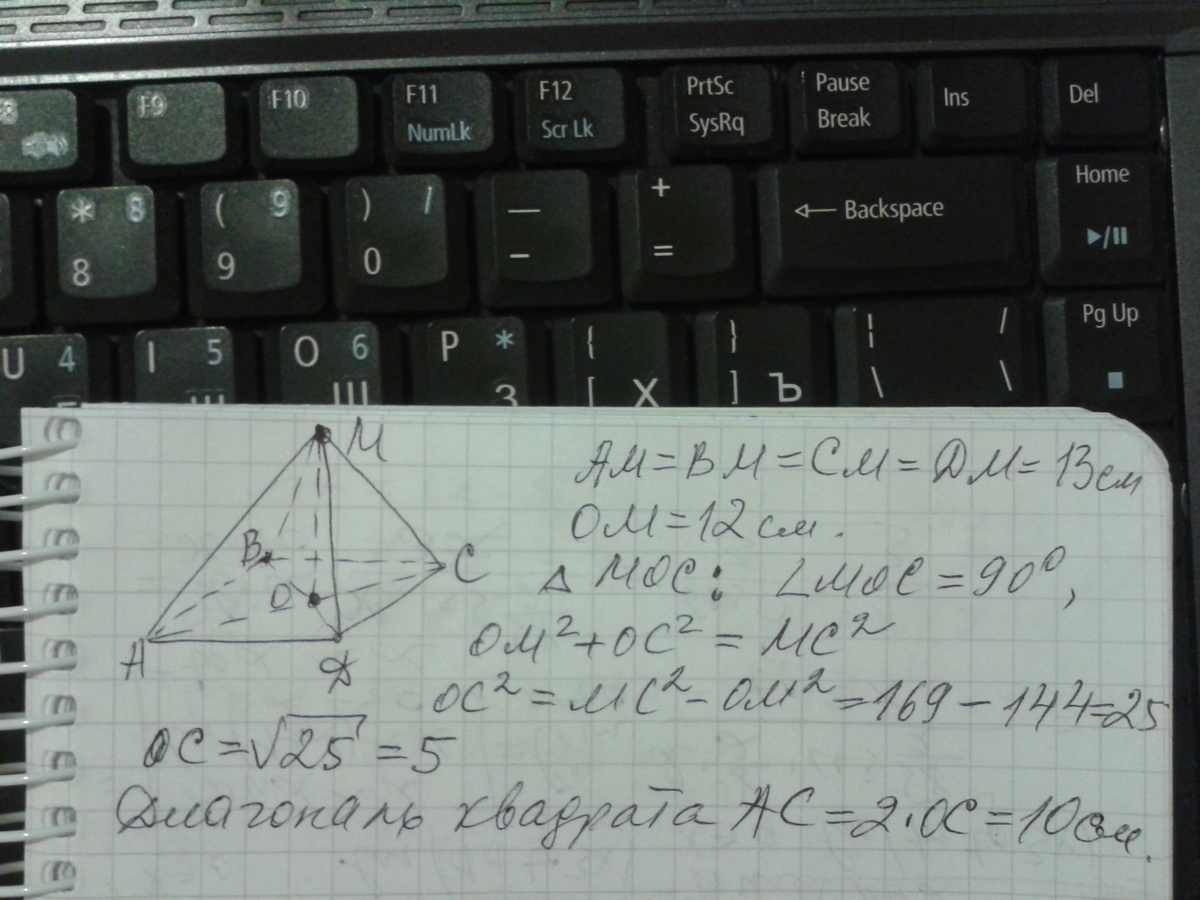 F9 F10 F11 NumLk F12 Scr Lk PrtSc SysRq Pause Break Ins Del
* 8 8 ( 9 9 ) / 0 — - + = Backspace Home
U 4 I 5 O 6 Ш P * З { [ Х } ] Ъ ¦ \ / \ Pg Up
M
B
C
O
A
Д
AM = BM = CM = ДM = 13 см
OM = 12 см.
△ MOC: ∠MOC = 90⁰,
OM² + OC² = MC²
OC² = MC² - OM² = 169 - 144 = 25
OC = √25 = 5
Диагональ квадрата AC = 2·OC = 10 см.